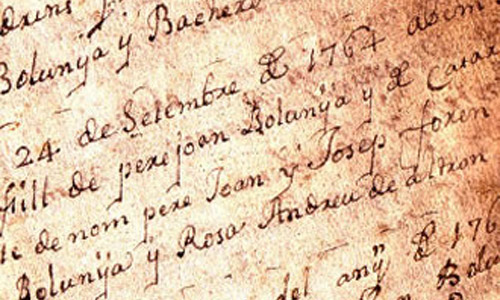 Bolunÿa y Bachere
24 de Setembre de 1764
fill de pere joan Bolunÿa y de Cata
de nom pere Joan y Josep foren
Bolunÿa y Rosa Andreu de
del anÿ de 176